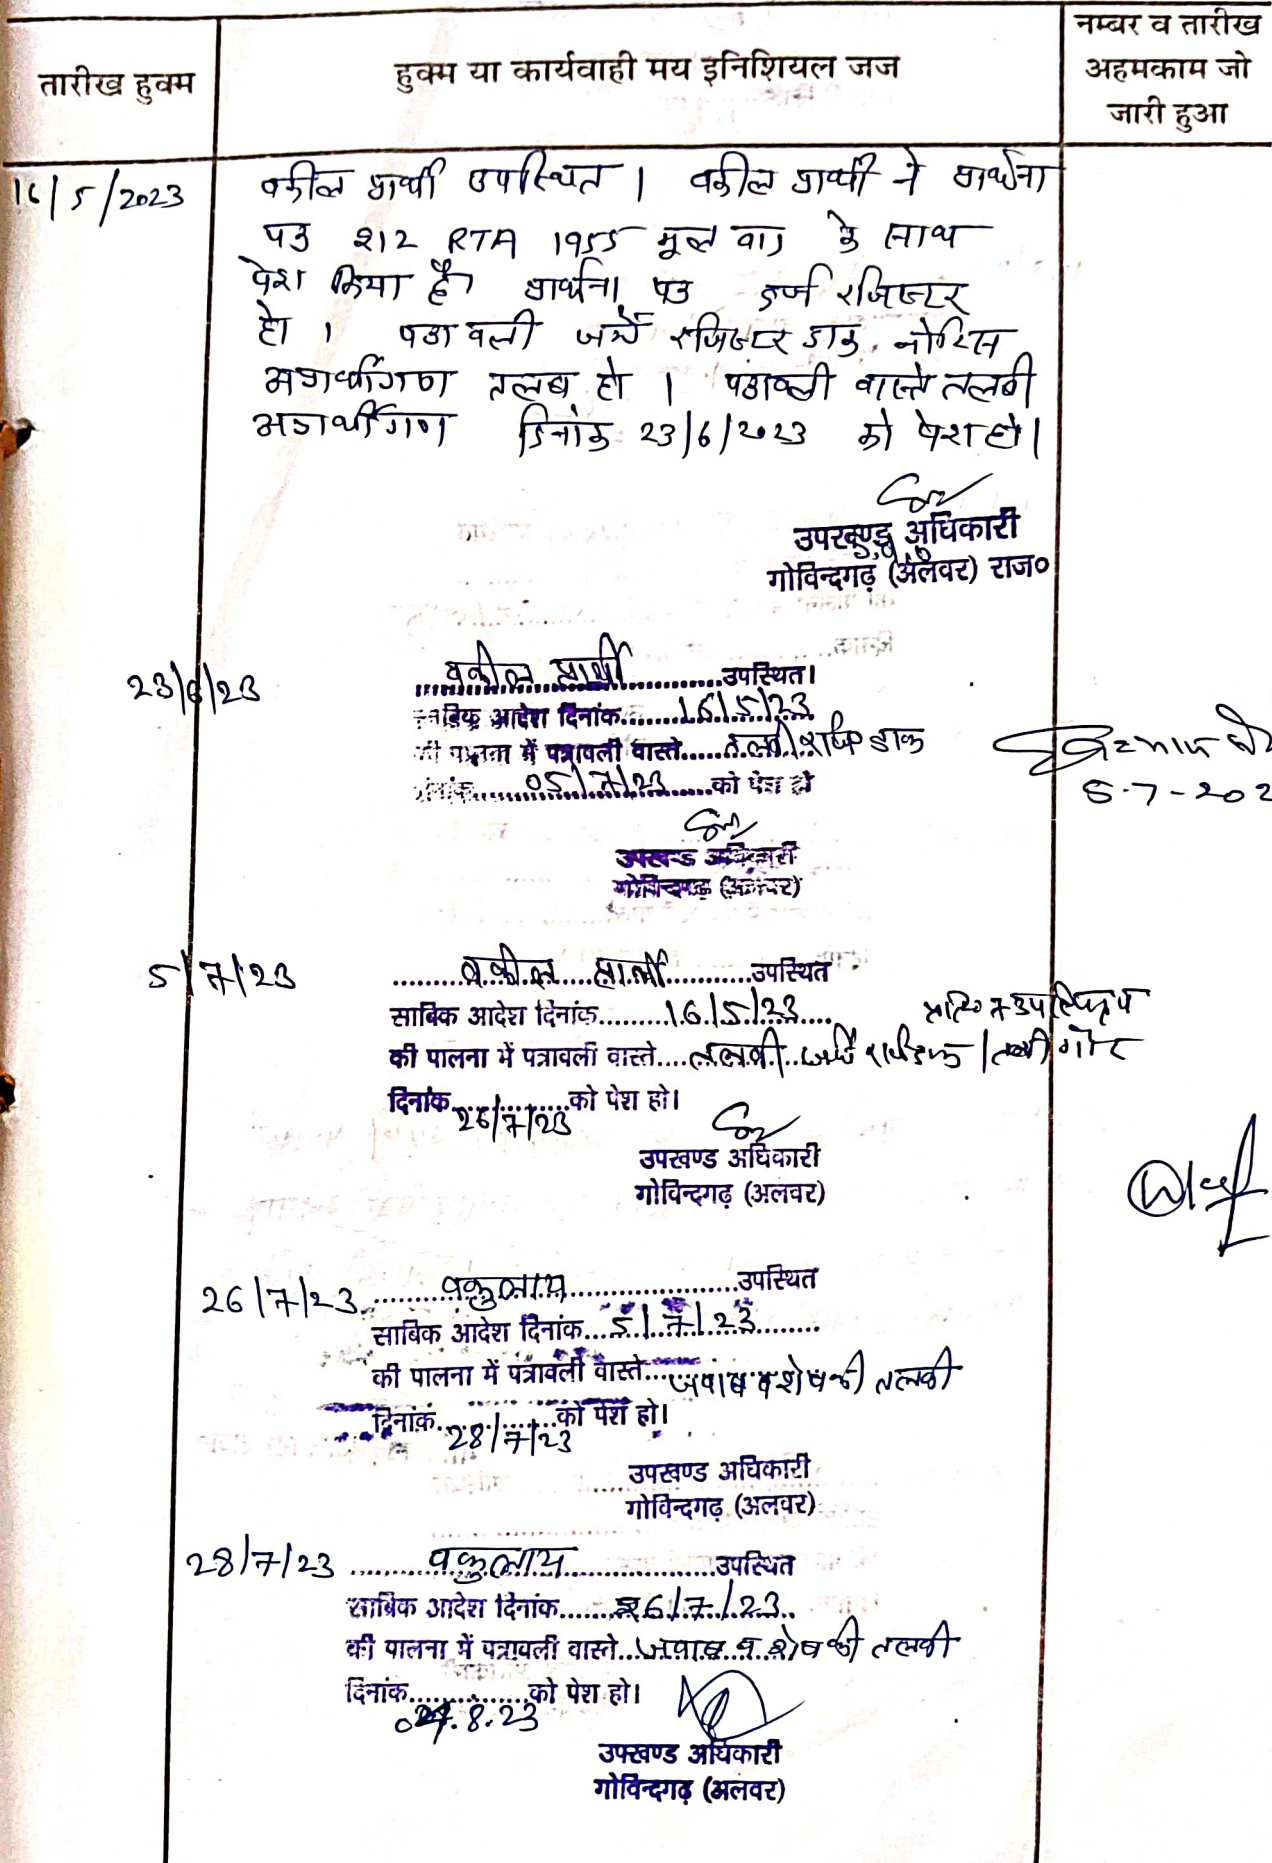 तारीख हुक्म
हुक्म या कार्यवाही मय इनिशियल जज
नम्बर व तारीख
अहमकाम जो
जारी हुआ
16/5/2023
वकील प्रार्थी उपस्थित । वकील प्रार्थी ने प्रार्थना
पत्र 212 RTA 1955 मूल वाद के साथ
पेश किया है। प्रार्थना पत्र दर्ज रजिस्टर
हो । पत्रावली जर्ये रजिस्टर डाक नोटिस
अप्रार्थीगण तलब हो । पत्रावली वास्ते तलबी
अप्रार्थीगण दिनांक 23/6/2023 को पेश हो।
उपखण्ड अधिकारी
गोविन्दगढ़ (अलवर) राज०
23/6/23
वकील प्रार्थी उपस्थित।
साबिक आदेश दिनांक 16/5/23
की पालना में पत्रावली वास्ते तलबी रजि डाक
दिनांक 05/7/23 को पेश हो
5-7-202
उपखण्ड अधिकारी
गोविन्दगढ़ (अलवर)
5/7/23
वकील प्रार्थी उपस्थित
साबिक आदेश दिनांक 16/5/23
की पालना में पत्रावली वास्ते तलबी जर्ये
दिनांक 26/7/23 को पेश हो।
उपखण्ड अधिकारी
गोविन्दगढ़ (अलवर)
26/7/23 वकुलाय उपस्थित
साबिक आदेश दिनांक 5/7/23
की पालना में पत्रावली वास्ते जवाब व शेष की तलबी
दिनांक 28/7/23 को पेश हो।
उपखण्ड अधिकारी
गोविन्दगढ़ (अलवर)
28/7/23 वकुलाय उपस्थित
साबिक आदेश दिनांक 26/7/23
की पालना में पत्रावली वास्ते जवाब व शेष की तलबी
दिनांक को पेश हो।
उपखण्ड अधिकारी
गोविन्दगढ़ (अलवर)